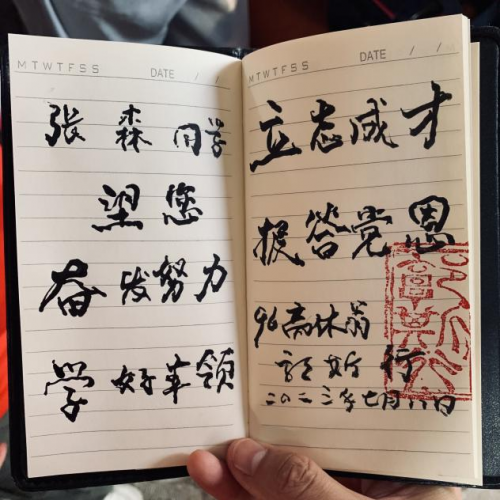 MTWTFSS DATE / /
张森同学
望您
奋发努力
学好本领
MTWTFSS DATE / /
立志成才
报答党恩
96 休翁
行
二〇二三年七月 日